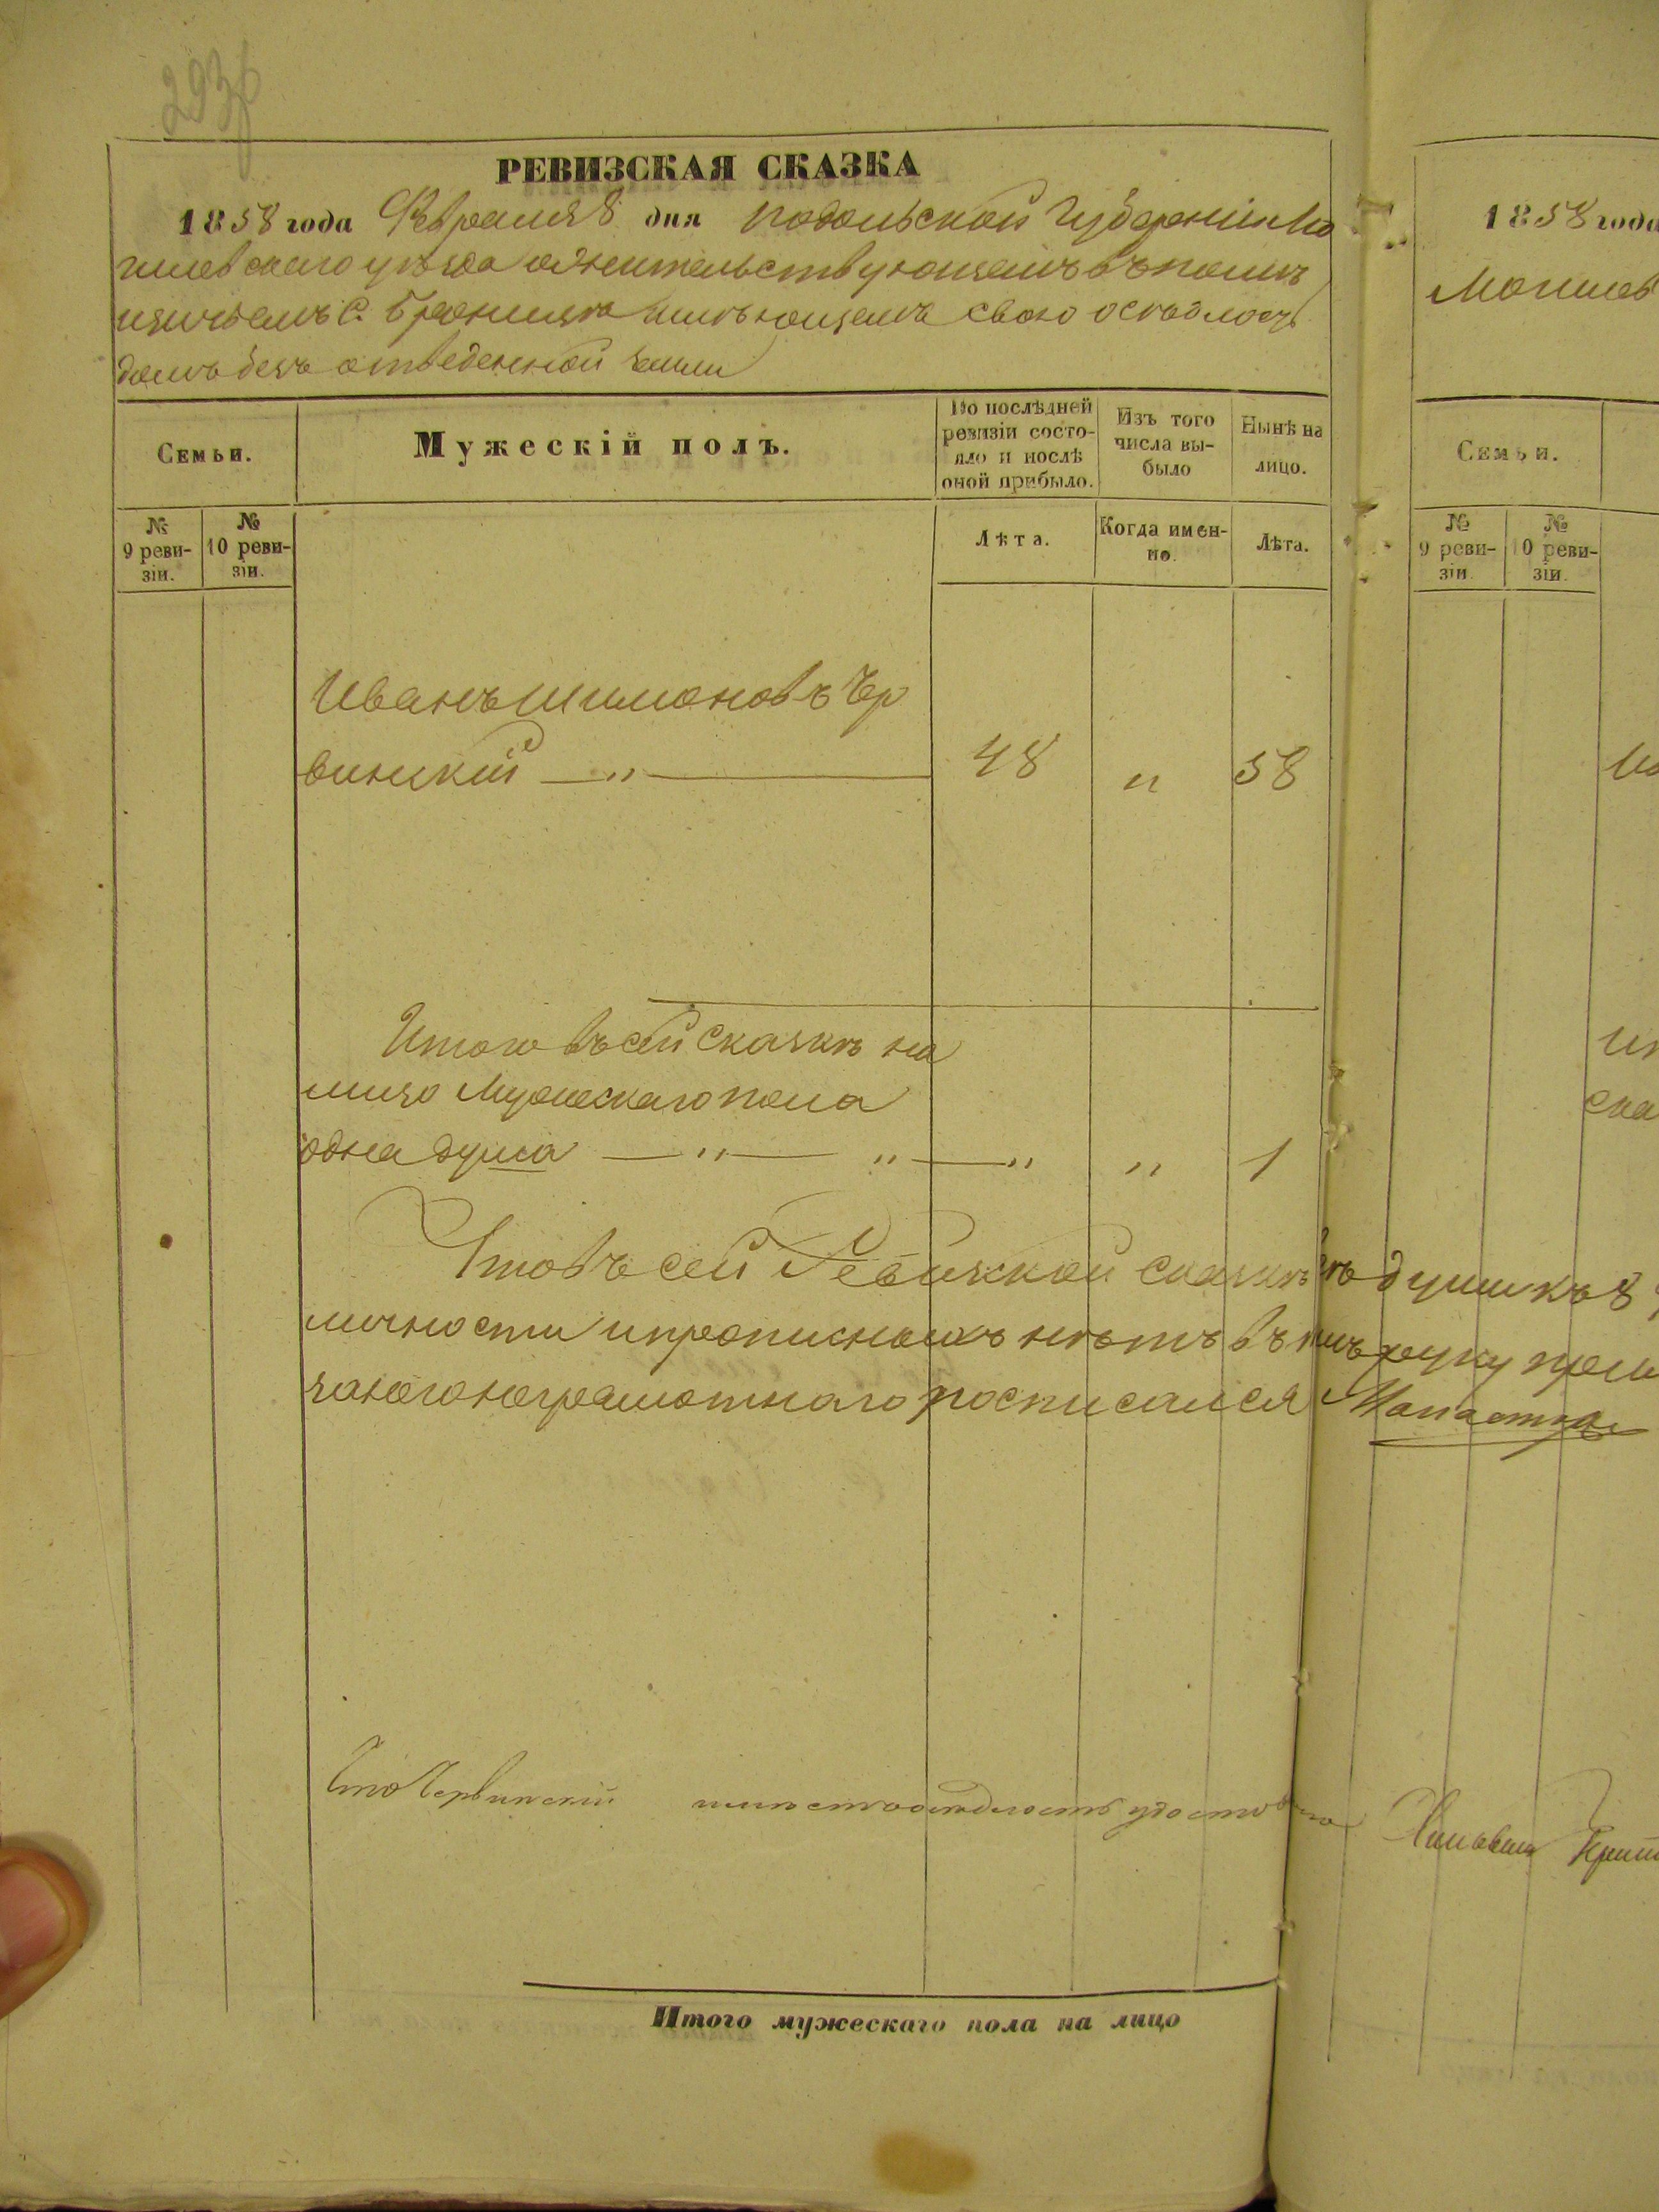 293
РЕВИЗСКАЯ СКАЗКА
1858 года Февраля 8 дня Подольской Губерніи Мо
гилевскаго уѣзда о жительствующемъ въ помѣ
щичьемъ с. имѣющемъ свою осѣдлость
домъ безъ отведенной земли
Семьи.
Мужескій полъ.
По послѣдней ревизіи состояло и послѣ оной прибыло.
Изъ того числа выбыло
Нынѣ на лицо.
№ 9 ревизіи.
№ 10 ревизіи.
Лѣта.
Когда именно.
Лѣта.
Иванъ Шимоновъ Чер
винскій — „ — 48 „ 58
Итого въ сей сказкѣ на
лицо Мужескаго пола
одна душа — „ — „ — „ „ 1
Что въ сей Ревизской сказкѣ душъ къ
личности и прописныхъ нѣтъ въ томъ руку
неграмотнаго росписался
Что Червинскій осѣдлость
Итого мужескаго пола на лицо
1858 года
Могилев
Семьи.
№ 9 ревизіи.
№ 10 ревизіи.